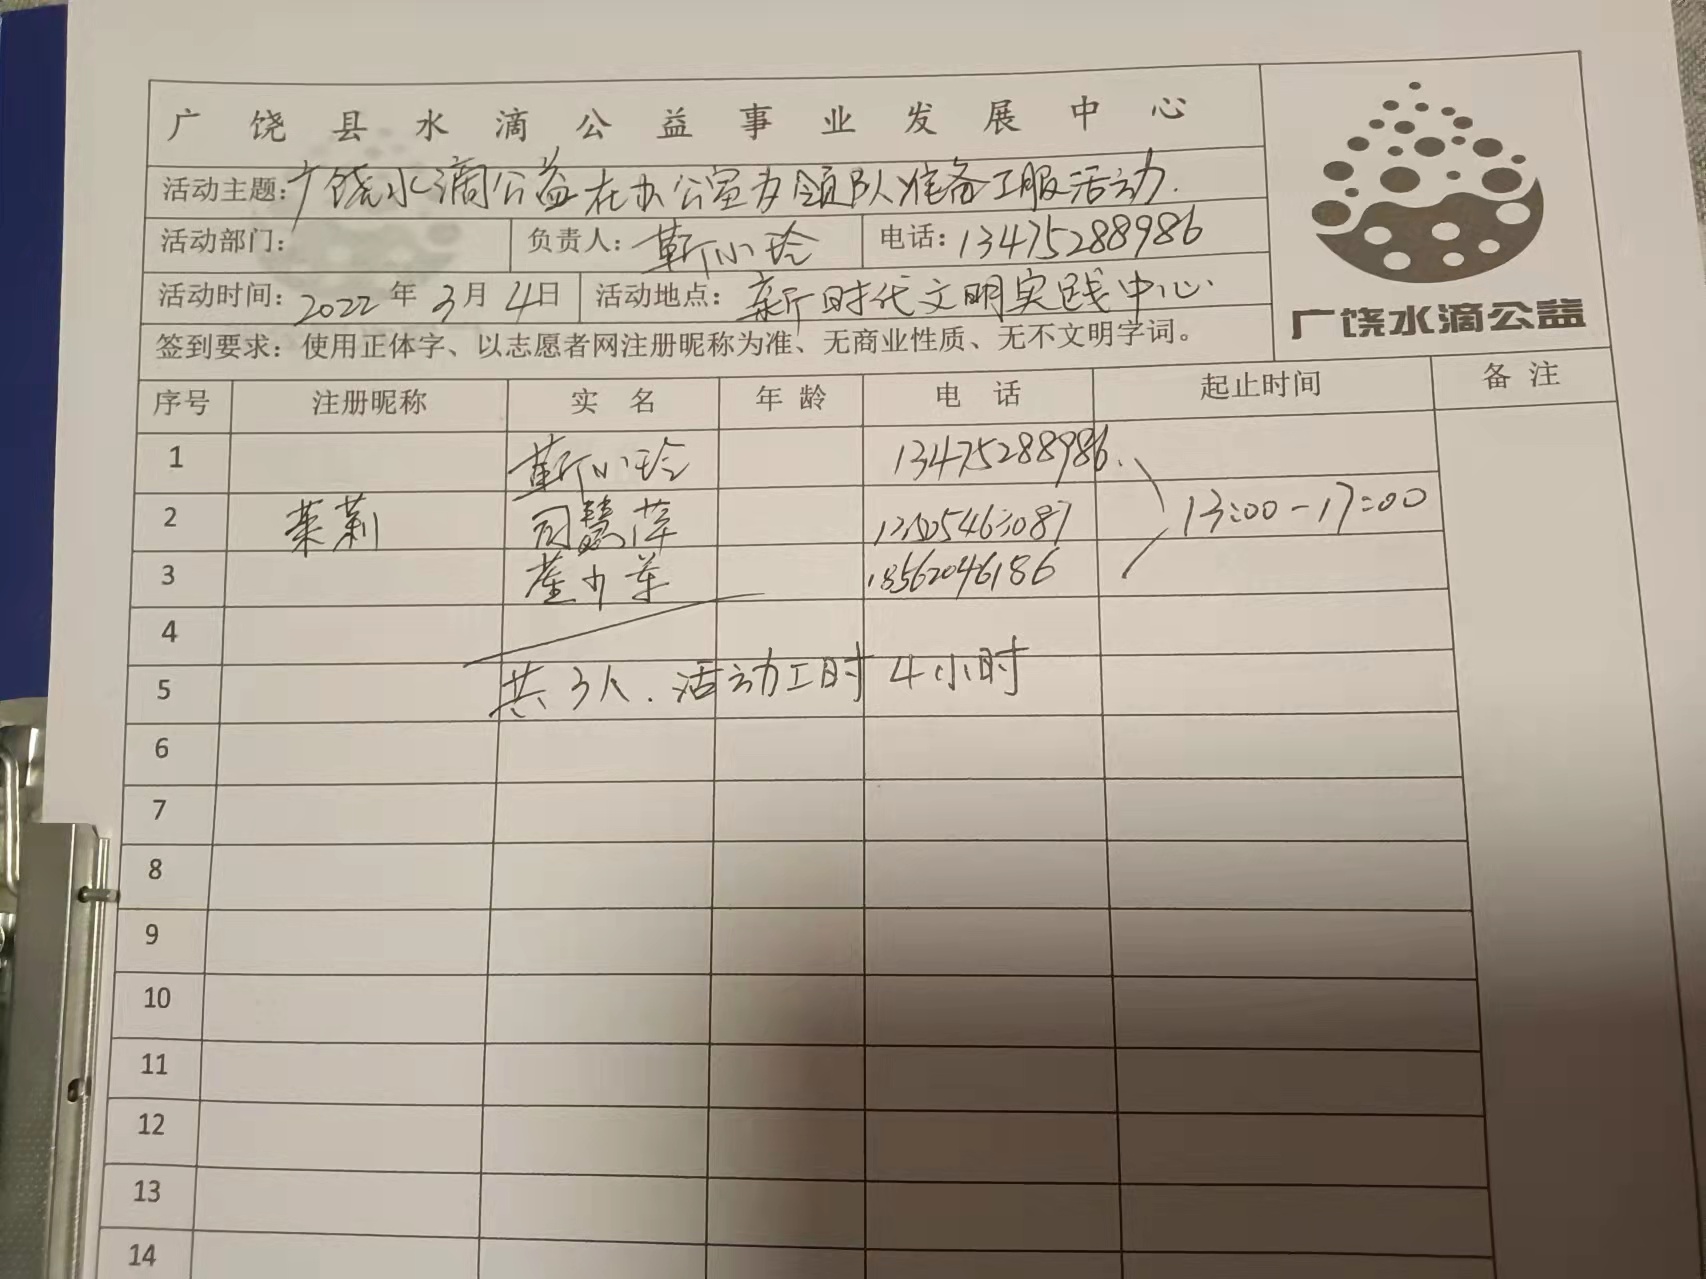 广饶县水滴公益事业发展中心
活动主题：广饶水滴公益在办公室为领队准备工服活动.
活动部门： 负责人：靳小玲 电话：13475288986
活动时间：2022年3月4日 活动地点：新时代文明实践中心.
广饶水滴公益
签到要求：使用正体字、以志愿者网注册昵称为准、无商业性质、无不文明字词。
序号 注册昵称 实 名 年 龄 电 话 起止时间 备 注
1 靳小玲 13475288986.
2 茉莉 司慧萍 13:00-17:00
3 18562046186
4
5 共3人.活动工时4小时
6
7
8
9
10
11
12
13
14